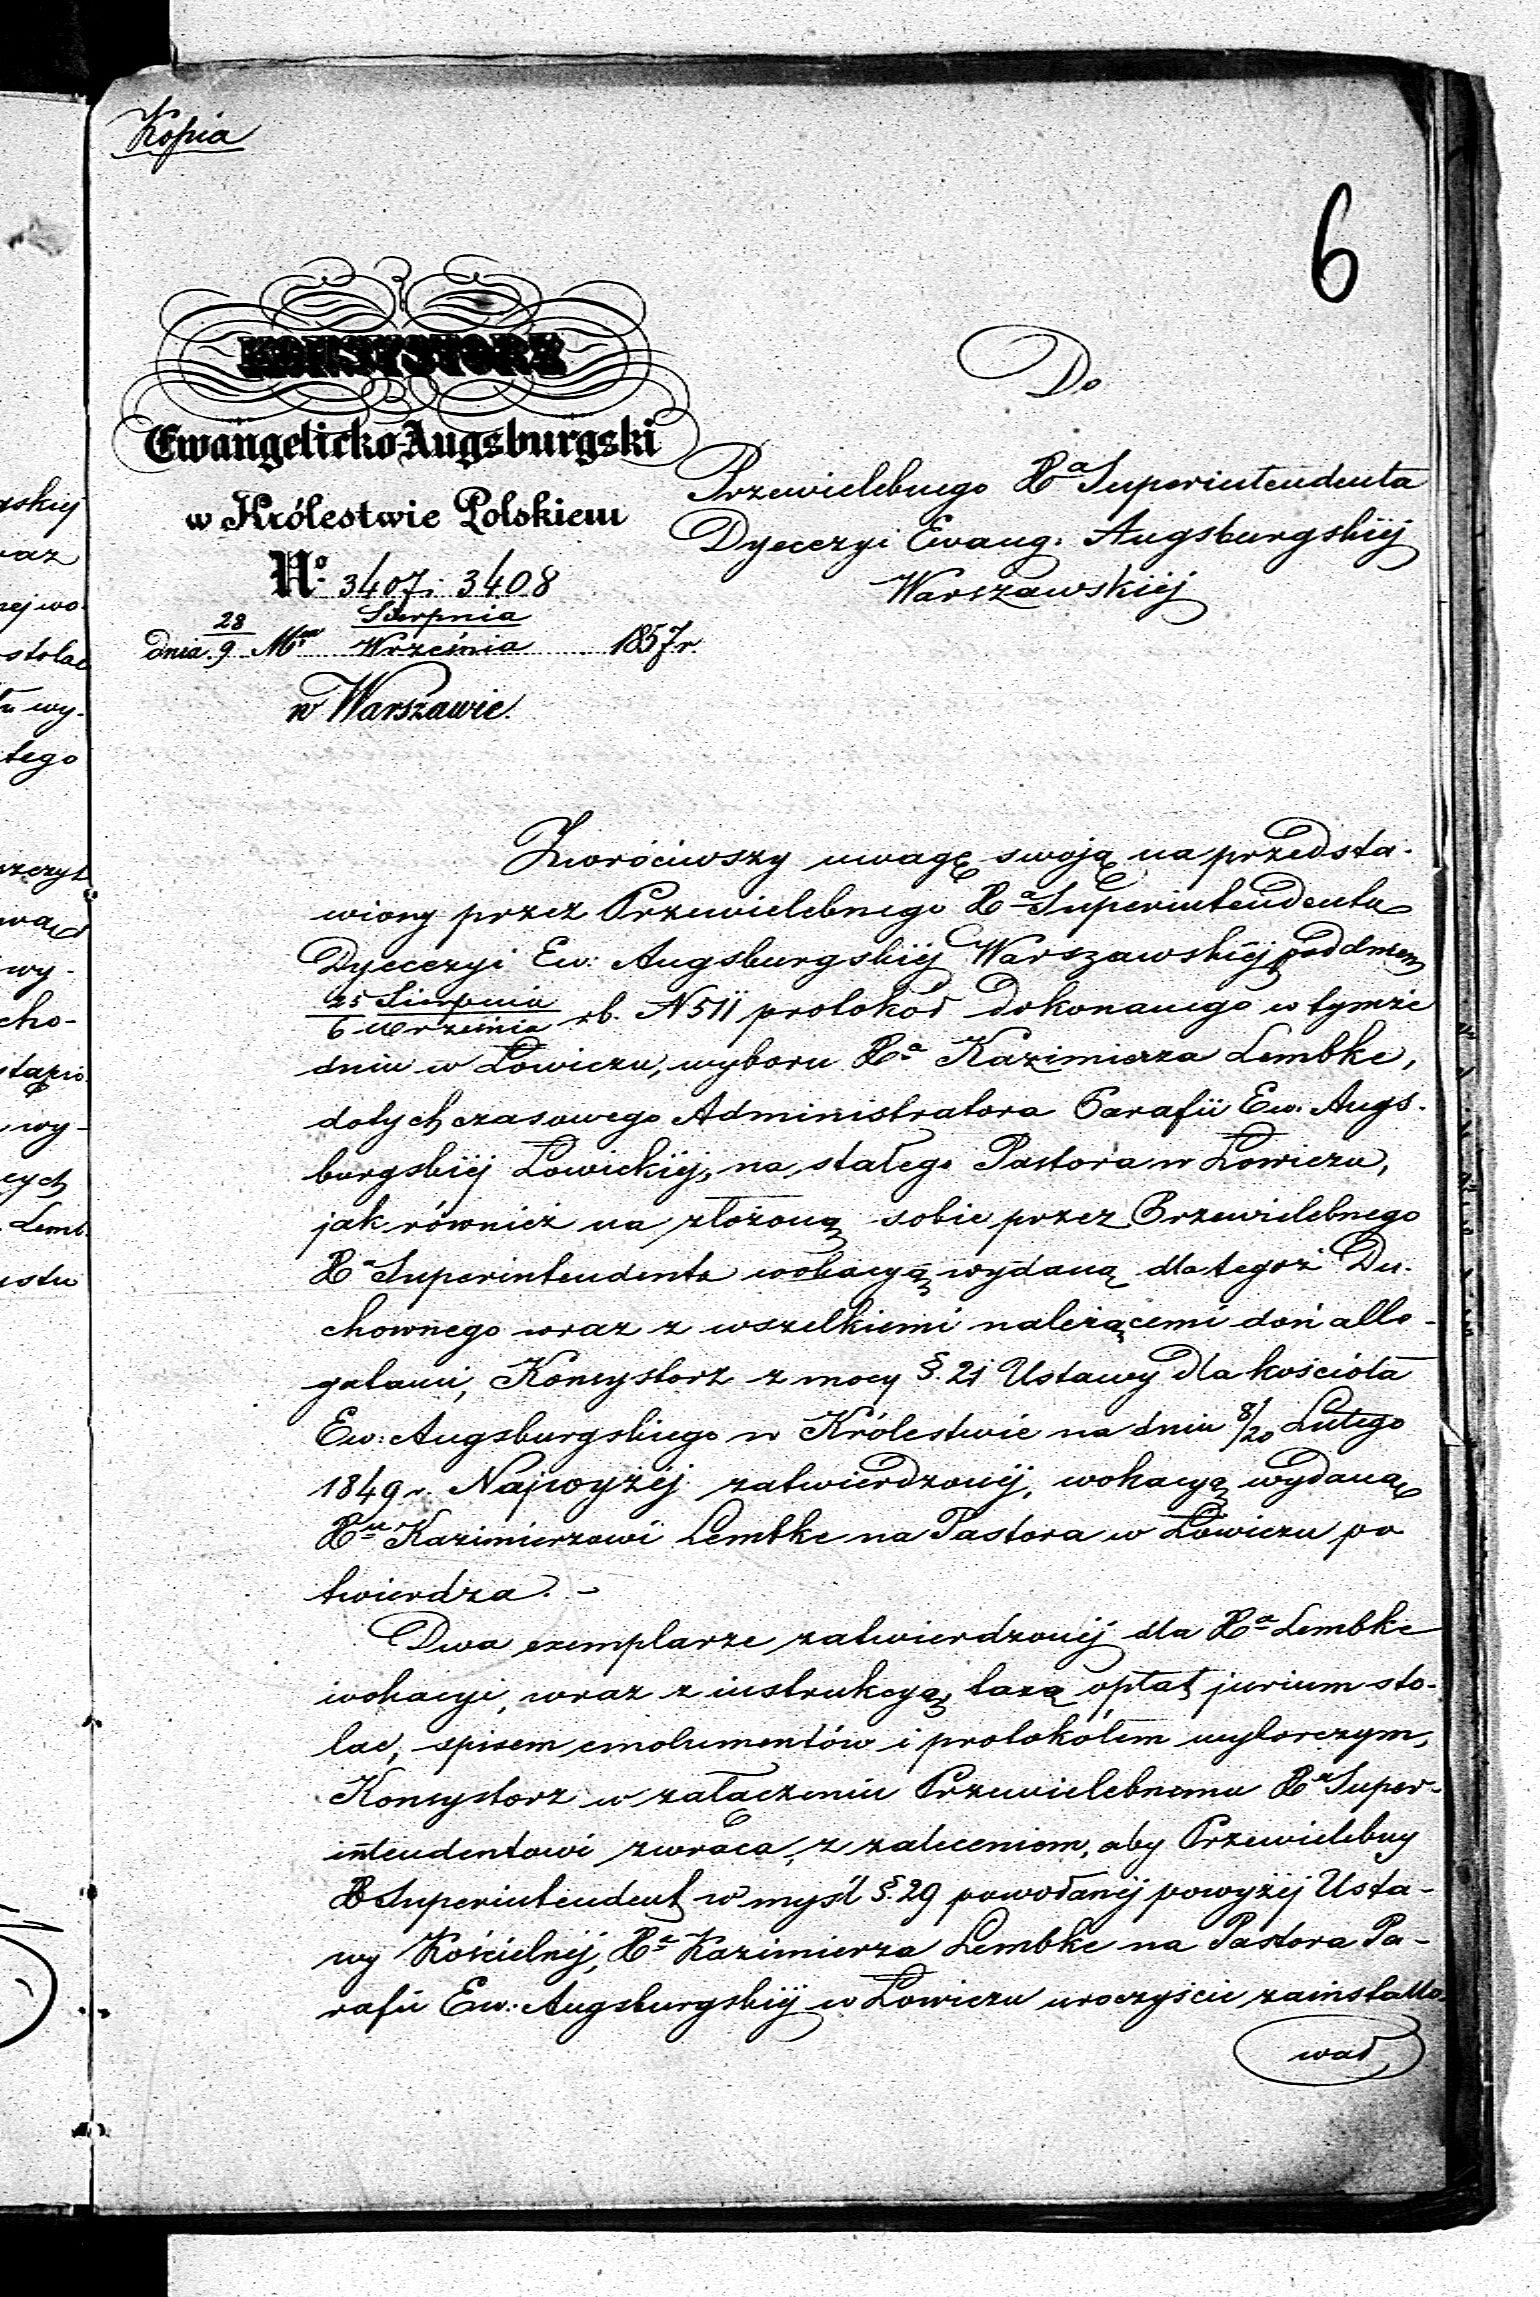 Kopia
6
KONSYSTORZ
Ewangelicko-Augsburgski
w Królestwie Polskiem
No. 3407 i 3408
dnia 28/9 Mca Sierpnia/Września 1857 r.
w Warszawie.
Do
Przewielebnego Xa Superintendenta
Dyecezyi Ewang. Augsburgskiéj
Warszawskiéj
Zwróciwszy uwagę swoją na przedsta-
wiony przez Przewielebnego Xa Superintendenta
Dyecezyi Ew: Augsburgskiéj Warszawskiéj pod dniem
25 Sierpnia/6 Września rb. N 511 protokół dokonanego w tymże
dniu w Łowiczu, wyboru Xa Kazimierza Lembke,
dotychczasowego Administratora Parafii Ew. Augs-
burgskiéj Łowickiéj, na stałego Pastora w Łowiczu,
jak również na złożoną sobie przez Przewielebnego
Xa Superintendenta wokacyą wydaną dla tegoż Du-
chownego wraz z wszelkiemi należącemi doń alle-
gatami, Konsystorz z mocy §. 21 Ustawy dla kościoła
Ew: Augsburgskiego w Królestwie na dniu 8/20 Lutego
1849 r. Najwyżéj zatwierdzonéj, wokacyą wydaną
Xu Kazimierzowi Lembke na Pastora w Łowiczu po
twierdza. -
Dwa exemplarze zatwierdzonéj dla Xa Lembke
wokacyi, wraz z instrukcyą, taxą opłat jurium sto-
lae, spisem emolumentów i protokółem wyborczym,
Konsystorz w załączeniu Przewielebnemu Xu Super-
intendentowi zwraca, z zaleceniem, aby Przewielebny
X Superintendent w myśl §. 29 powołanéj powyżéj Usta-
wy Kościelnéj, Xa Kazimierza Lembke na Pastora Pa-
rafii Ew: Augsburgskiéj w Łowiczu uroczyście zainstallo-
wał